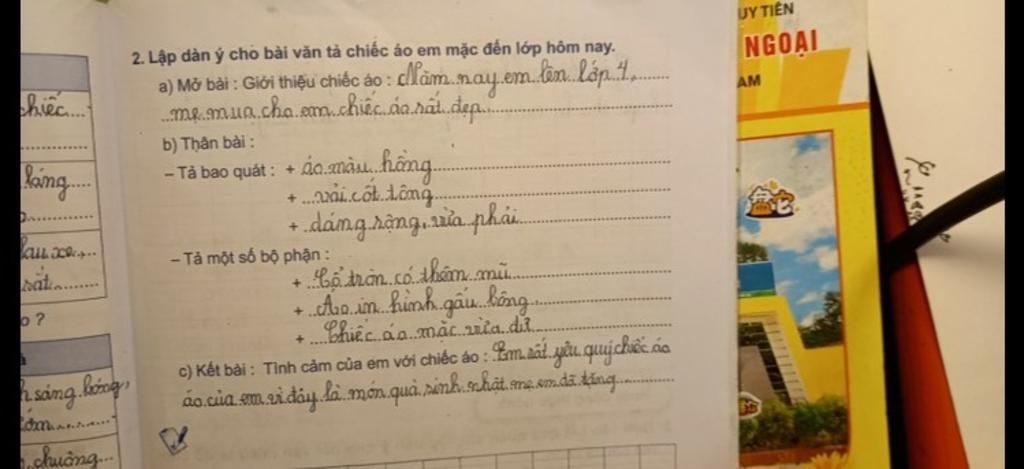 UY TIÊN
NGOẠI
AM
chiếc...
láng
sau xe...
sát
o ?
h sáng bóng,
chuông...
2. Lập dàn ý cho bài văn tả chiếc áo em mặc đến lớp hôm nay.
a) Mở bài : Giới thiệu chiếc áo : Năm nay em lên lớp 4,
mẹ mua cho em chiếc áo rất đẹp.
b) Thân bài :
– Tả bao quát : + áo màu hồng
+ vải cốt tông
+ dáng rộng, vừa phải
– Tả một số bộ phận :
+ Cổ tròn có thêm mũ
+ Áo in hình gấu bông
+ Chiếc áo mặc vừa dử
c) Kết bài : Tình cảm của em với chiếc áo : Em rất yêu quý chiếc áo
áo của em vì đây là món quà sinh nhật mẹ em đã tặng